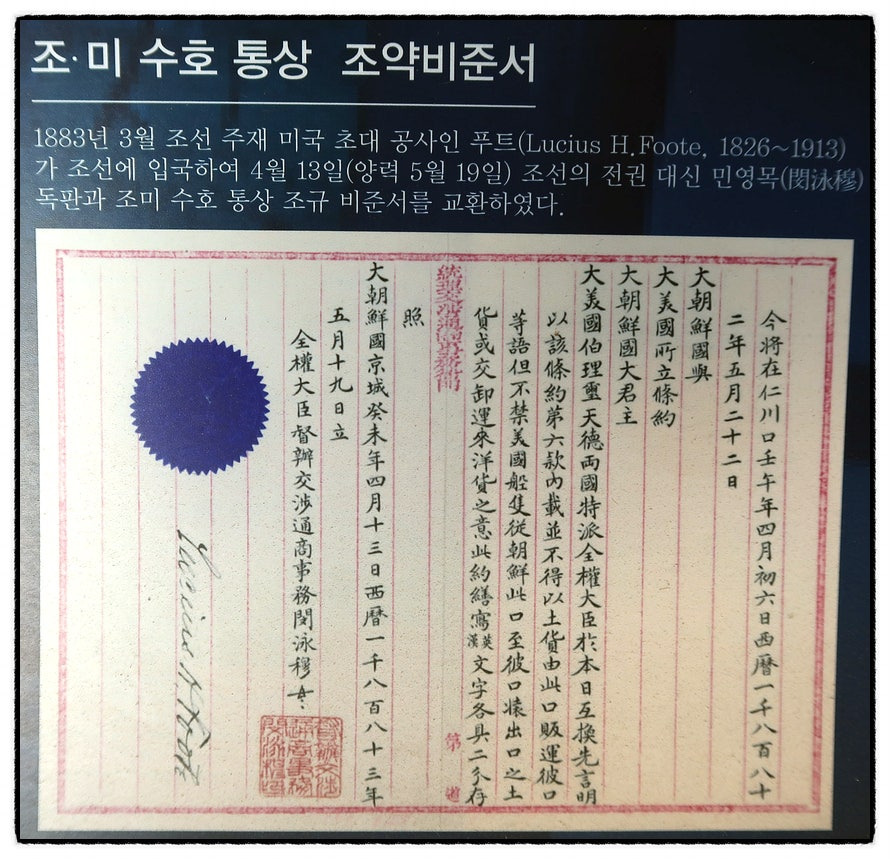 조·미 수호 통상 조약비준서
1883년 3월 조선 주재 미국 초대 공사인 푸트(Lucius H.Foote, 1826~1913)
가 조선에 입국하여 4월 13일(양력 5월 19일) 조선의 전권 대신 민영목(閔泳穆)
독판과 조미 수호 통상 조규 비준서를 교환하였다.
今將在仁川口壬午年四月初六日西曆一千八百八十
二年五月二十二日
大朝鮮國與
大美國所立條約
大朝鮮國大君主
大美國伯理璽天德兩國特派全權大臣於本日互換先言明
以該條約第六款內載並不得以土貨由此口販運彼口
等語但不禁美國船隻從朝鮮此口至彼口裝出口之土
貨或交卸運來洋貨之意此約繕寫漢英文字各具二分存
照
大朝鮮國京城癸未年四月十三日西曆一千八百八十三年
五月十九日立
全權大臣督辦交涉通商事務閔泳穆
Lucius H. Foote